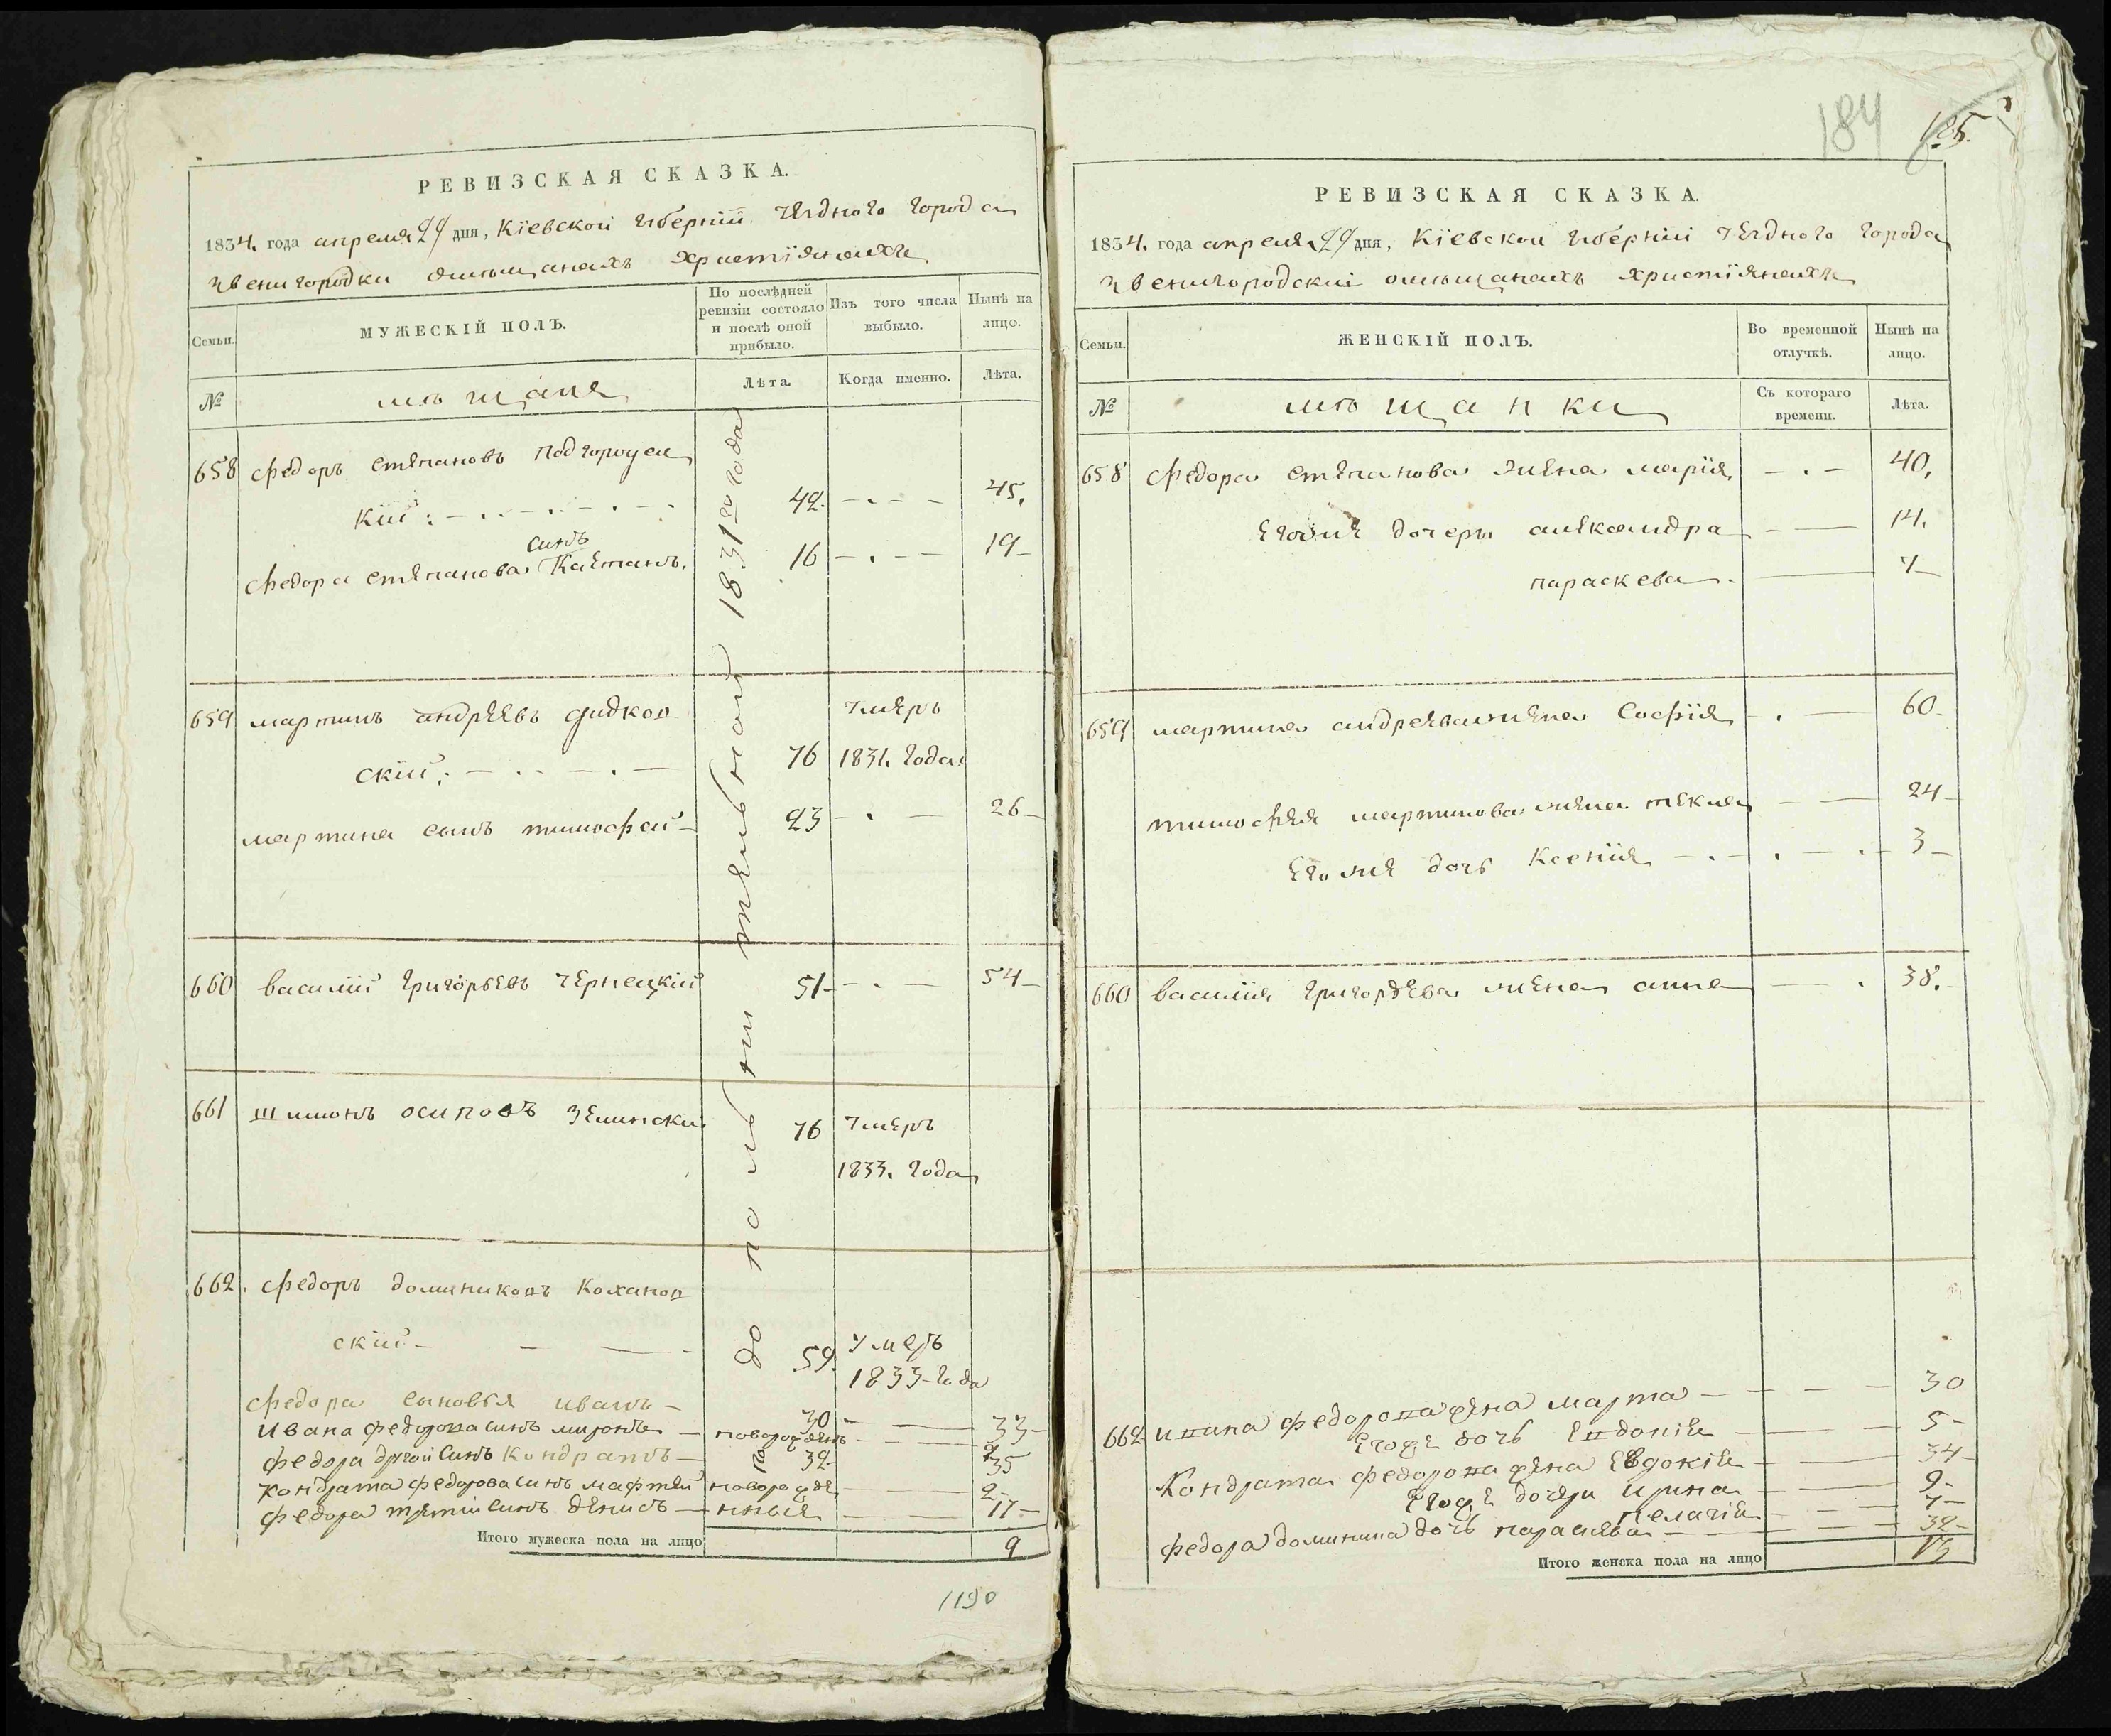 РЕВИЗСКАЯ СКАЗКА.
1834. года апреля 29 дня, Кіевской губерніи уезднаго города
звенигородки омещанахъ христіянахъ
Семьи.
МУЖЕСКІЙ ПОЛЪ.
По послѣдней ревизіи состояло и послѣ оной прибыло.
Изъ того числа выбыло.
Нынѣ на лицо.
№
мѣщане
Лѣта.
Когда именно.
Лѣта.
до полнительной 1831го года
658 федоръ степановъ подгородец
кій 42. 45.
сынъ
федора степанова Каетанъ. 16 19
659 мартинъ андреевъ
умеръ
скій 76 1831. года
мартина сынъ тимофей 23 26
660 василій григорьевъ чернецкій 51 54
661 шимонъ осиповъ зелинскій 76 умеръ
1833. года
662. федоръ доминиковъ Кохановскій 59. умеръ
1833 года
федора сыновья иванъ 30 33
Ивана федорова синъ миронъ новорожденъ 2
федора другой синъ Кондратъ 32 35
Кондрата федорова синъ мафтей новорожде 2
федора третій синъ денисъ нные 17
Итого мужеска пола на лицо 9
1190
184
185
РЕВИЗСКАЯ СКАЗКА.
1834. года апреля 29 дня, Кіевской губерніи уезднаго города
звенигородский омещанахъ христіянахъ
Семьи.
ЖЕНСКІЙ ПОЛЪ.
Во временной отлучкѣ.
Нынѣ на лицо.
№
мѣщанки
Съ котораго времени.
Лѣта.
658 федора степанова жена марія 40.
егоже дочери александра 14.
параскева 7
659 мартина андреева жена софія 60
тимофея мартинова жена текля 24
егоже дочь Ксенія 3
660 василія григорьева жена анна 38.
662 ивана федорова жена марта 30
егоже дочь евдокія 5
Кондрата федорова жена евдокія 34
егоже дочери ирина 9
пелагія 7
федора доминика дочь параскева 32
Итого женска пола на лицо 13